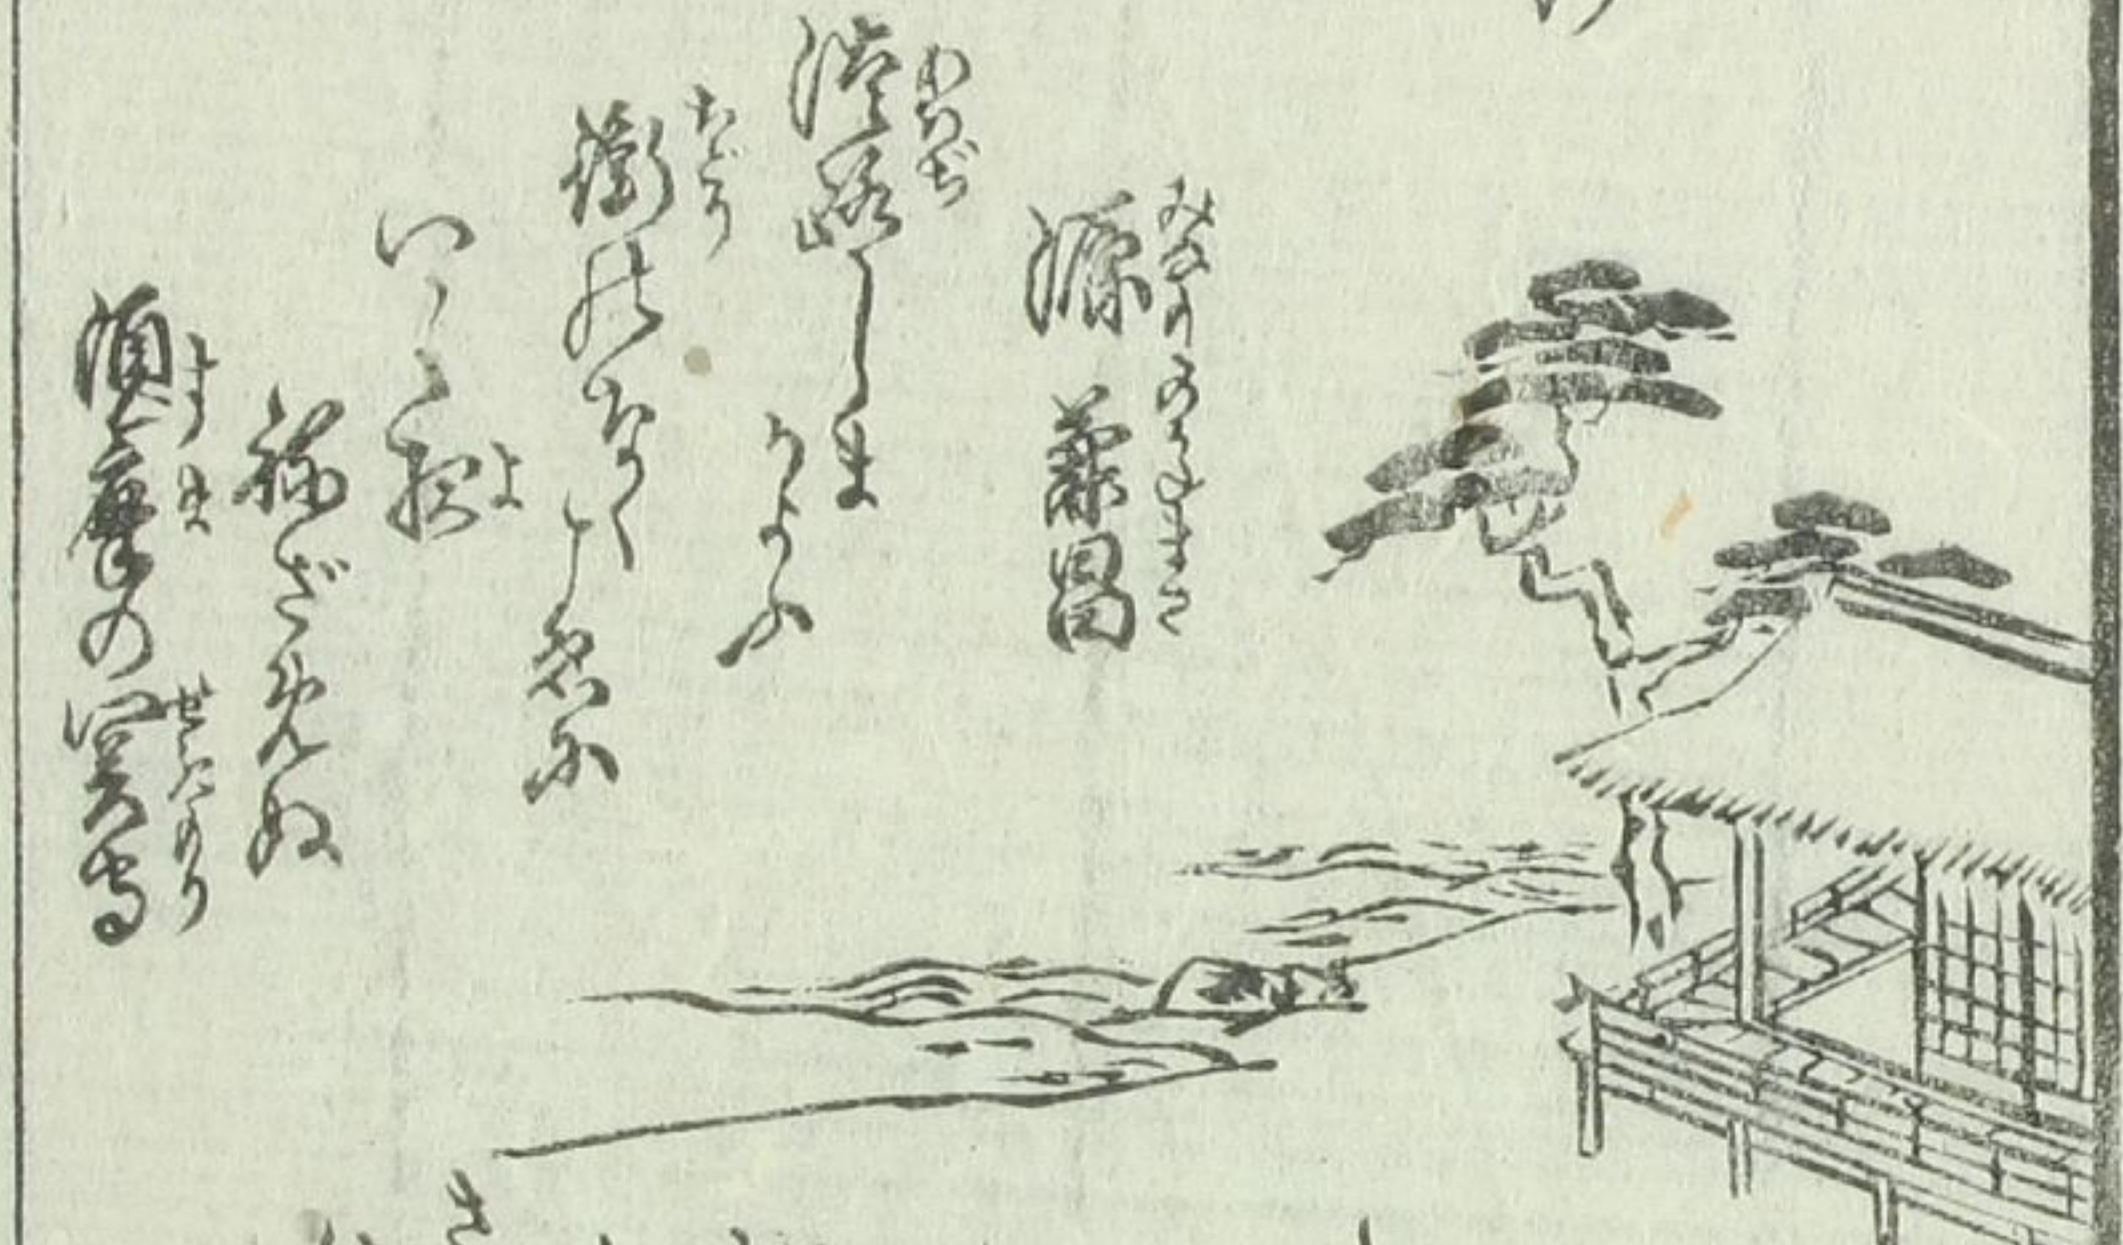 みなもとのかねまさ
源兼昌
あはぢ
淡路しま
かよふ
ちどり
鵆のなくこゑに
いく夜
よ
ねざめぬ
すま せきもり
須磨の関守